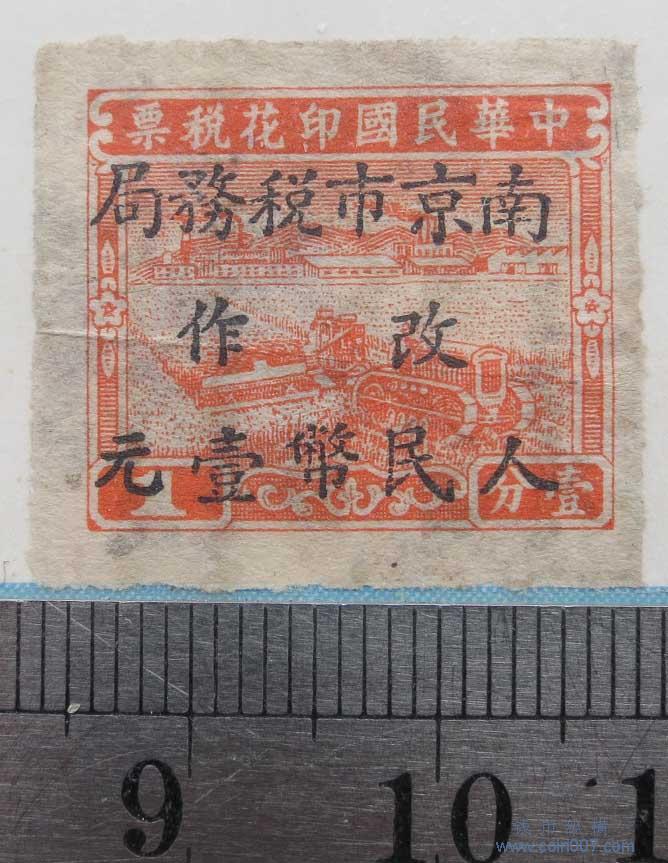 中華民國印花税票
南京市税務局
改作
人民幣壹元
壹分
1
9
10
1
城市纵横
www.coin007.com